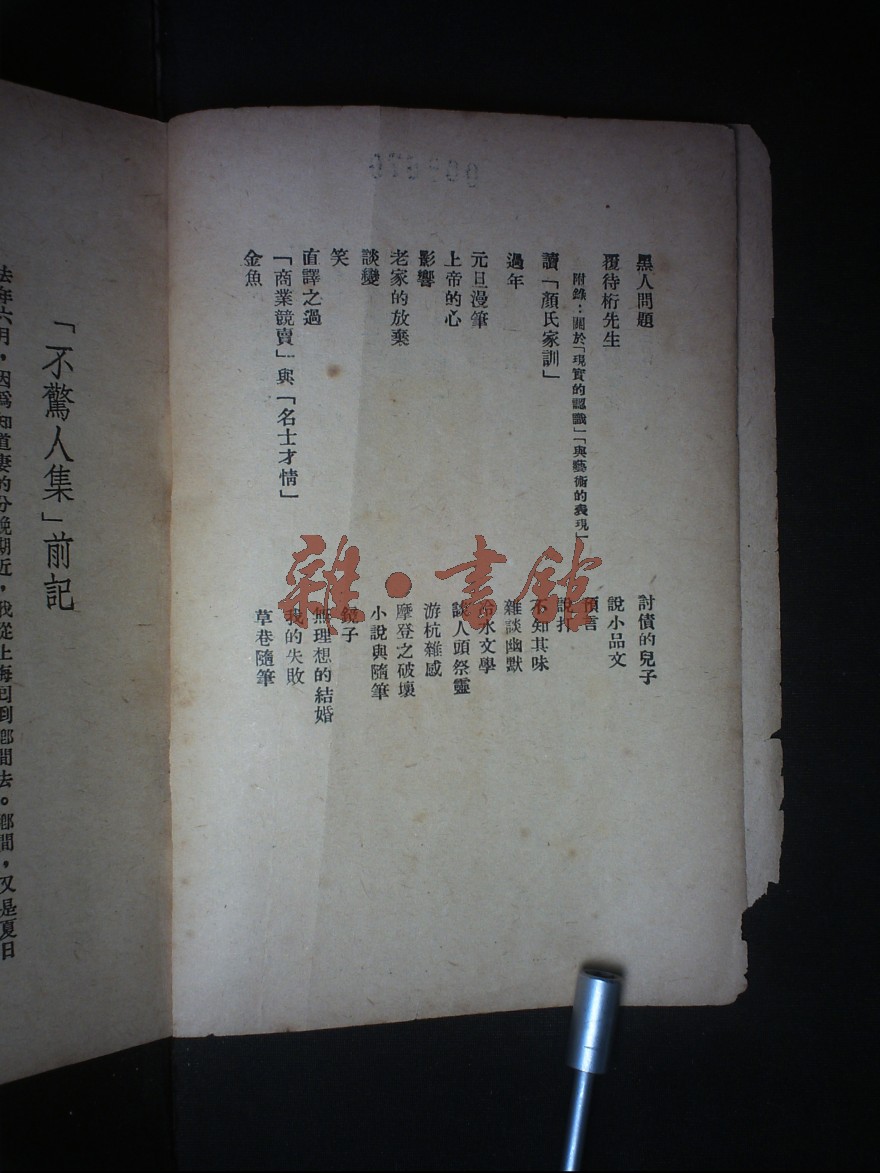 黑人問題
覆待桁先生
附錄：關於「現實的認識」「與藝術的表現」
讀「顏氏家訓」
過年
元旦漫筆
上帝的心
影響
老家的放棄
談變
笑
直譯之過
「商業競賣」與「名士才情」
金魚
討債的兒子
說小品文
預言
說打
不知其味
雜談幽默
冷水文學
談人頭祭靈
游杭雜感
摩登之破壞
小說與隨筆
鏡子
無理想的結婚
我的失敗
草巷隨筆
「不驚人集」前記
去年六月，因爲知道妻的分娩期近，我從上海回到鄉間去。鄉間，又是夏日
雜·書館